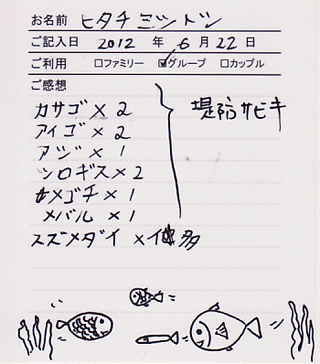 お名前 ヒタチミツトシ
ご記入日 2012 年 6 月 22 日
ご利用 □ファミリー ☑グループ □カップル
ご感想
カサゴ×2
アイゴ×2
アジ×1
シロギス×2
メゴチ×1
メバル×1
スズメダイ×多
堤防サビキ